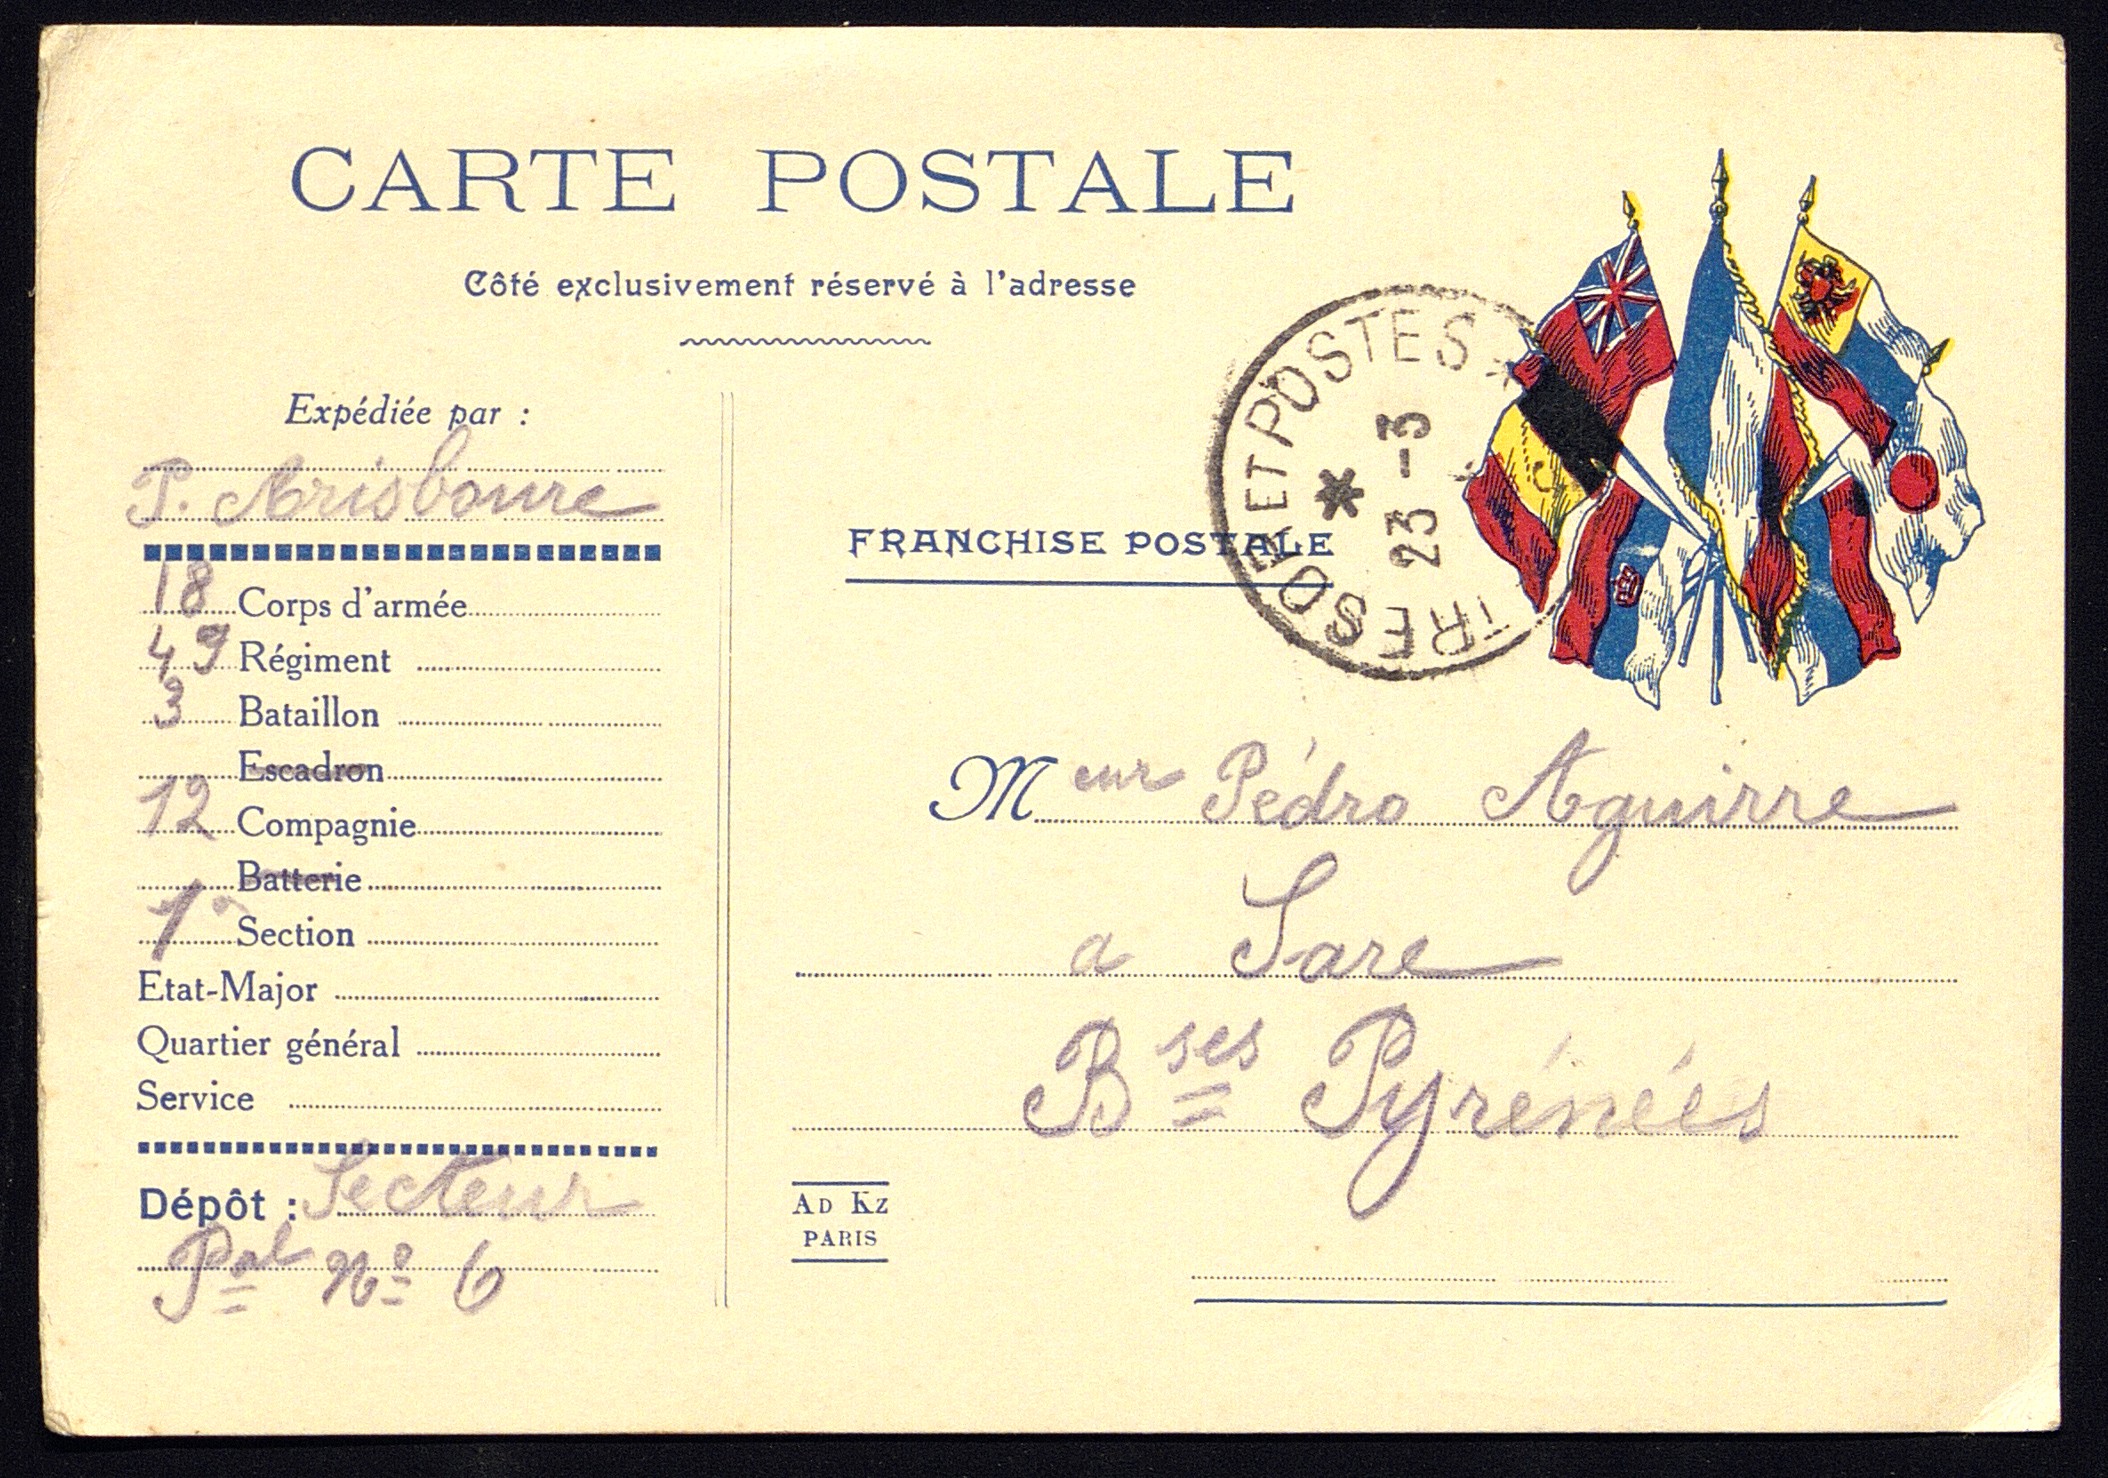 CARTE POSTALE
Côté exclusivement réservé à l'adresse
Expédiée par :
P. Arisboure
18 Corps d'armée
49 Régiment
3 Bataillon
Escadron
12 Compagnie
Batterie
1e Section
Etat-Major
Quartier général
Service
Dépôt : Secteur
Pal No 6
FRANCHISE POSTALE
TRESOR ET POSTES *
*
23 -3
Meur Pédro Aguirre
a Sare
Bses Pyrénées
AD KZ
PARIS